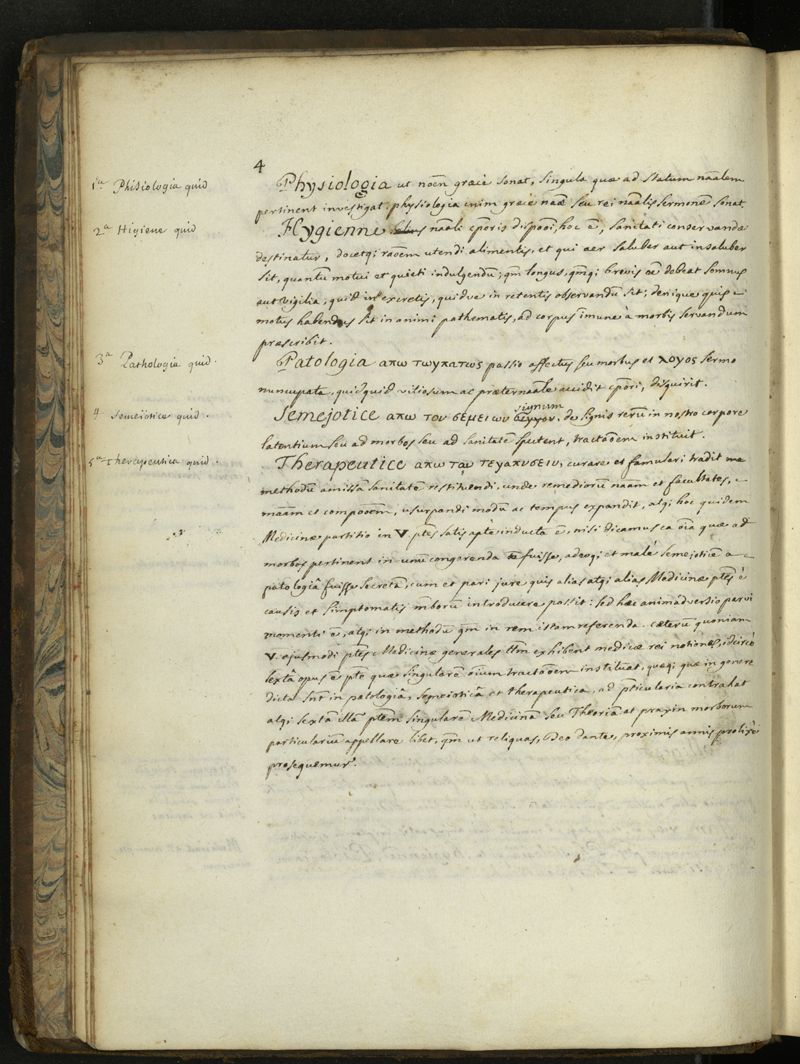 4
1ᵃ Phisiologia quid
Physiologia ut noēn graecè sonat, singula quae ad statum nāalem
pertinent investigat: physiologia enim graecè nāae seu rei nāalis sermonē sonat
2ᵃ Higiene quid
Hygienne nāali cp̄oris disposōi, hoc ē, sanitati conservandae
destinatur, docetq; rāoem utendi alimentis, et qui aer saluber aut insaluber
sit, quantū motui et quieti indulgendū; qm̄ longus, qm̄q; brevis eē debeat somnus
aut vigilia, quid in excretis, quidve in retentis observandum sit; denique quis
motus habendus sit in animi pathematis, ad corpus imune à morbis servandum
praescribit.
3ᵃ Pathologia quid.
Patologia απω τωυπατως passio affectus seu morbus et λογος sermo
nuncupata, quidquid vitiosum ac praeternāale accidit cp̄ori, disquirit.
4 Semeiotice quid.
signum
Semejotice απω του σεμειων, de signis rerū in nostro corpore
latentium seu ad morbos seu ad sanitatē spectent, tractāoem instituit.
5ᵃ Therapeutica quid.
Therapeutice απω του curare et famulari tradit me
methodū amissā sanitatē restituendi, unde remediorū nāam et facultates,
māam et compōoem, usurpandi modū ac tempus expandit, atq; hoc quidem
Medicinae partitio in V. ptēs satis aptè inducta ē, nisi dicamus ea oīa quae ad
morbos pertinent in unū congerenda fuisse, adeoq; et malè semeioticē a
patologiâ fuisse secretā, cum et pari jure quis alias atq; alias Medicinae ptēs è
causis et simptomatis mborū introducere possit: sed haec animadversio parvi
momenti ē, atq; in methodū qm̄ in rem istam referenda. caeterū quoniam
V. ejusmodi ptēs Medicinae generales ttm̄ exhibent medicae rei notiones, idcircò
sextâ opus ē ptē quae singularē oīum tractāoem instituat, quaeq; quae in genere
dicta sūt in patologiâ, semeioticâ et therapeutica, ad pticularia contrahat
atq; sextā illā ptēm singularē Medicinā seu Theoriā at praxin morborum
particulariū appellare libet, qm̄ ut reliquas, Deo dante, proximis annis prolixè
prosequemur.